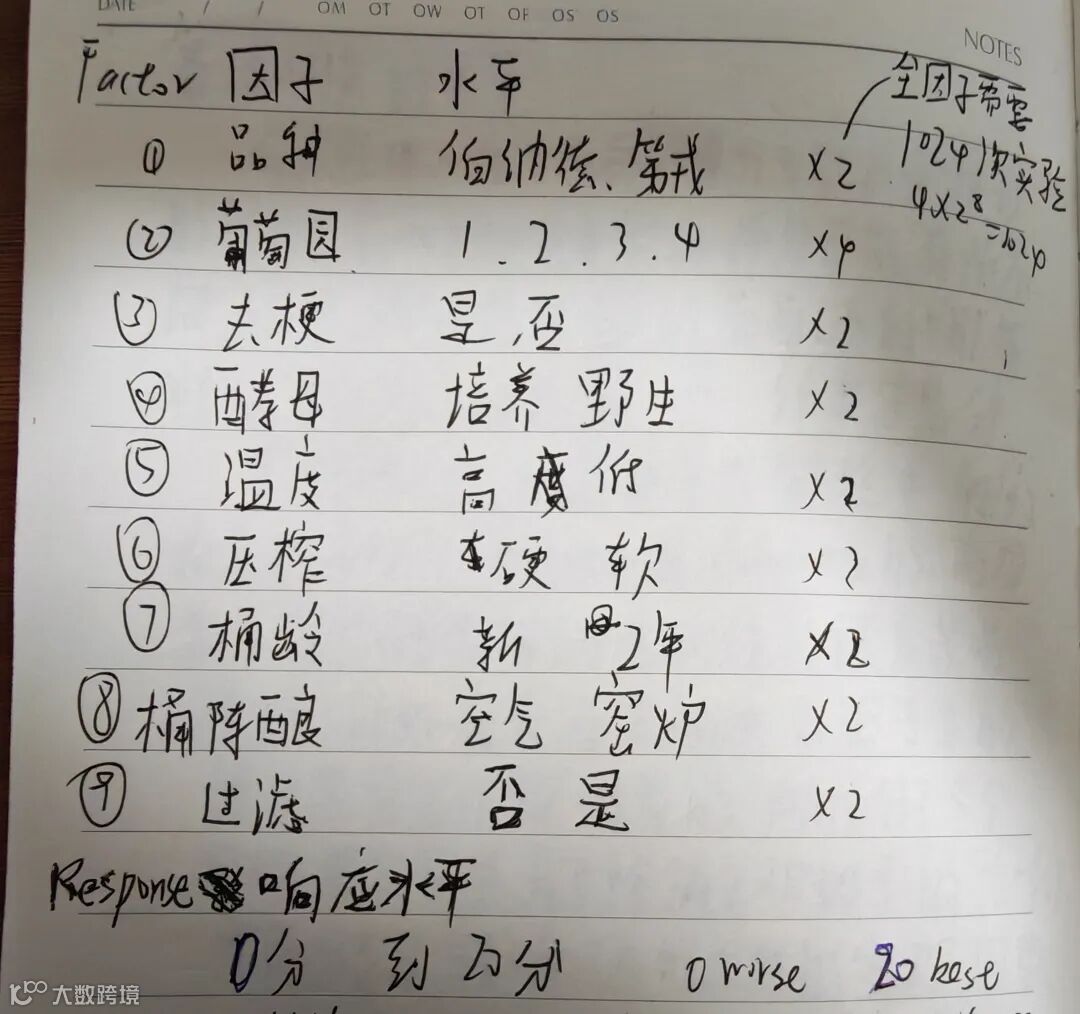 DATE / / OM OT OW OT OF OS OS
NOTES
Factor 因子 水平
全因子需要
1024次实验
4×2⁸=1024
① 品种 伯纳德、第戎 ×2
② 葡萄园 1.2.3.4 ×4
③ 去梗 是.否 ×2
④ 酵母 培养 野生 ×2
⑤ 温度 高 低 ×2
⑥ 压榨 硬 软 ×2
⑦ 桶龄 新 2年 ×2
⑧ 桶陈酿 空气 窑炉 ×2
⑨ 过滤 否 是 ×2
Response 响应水平
0分 到 百分 0 worse 20 best
大数跨境